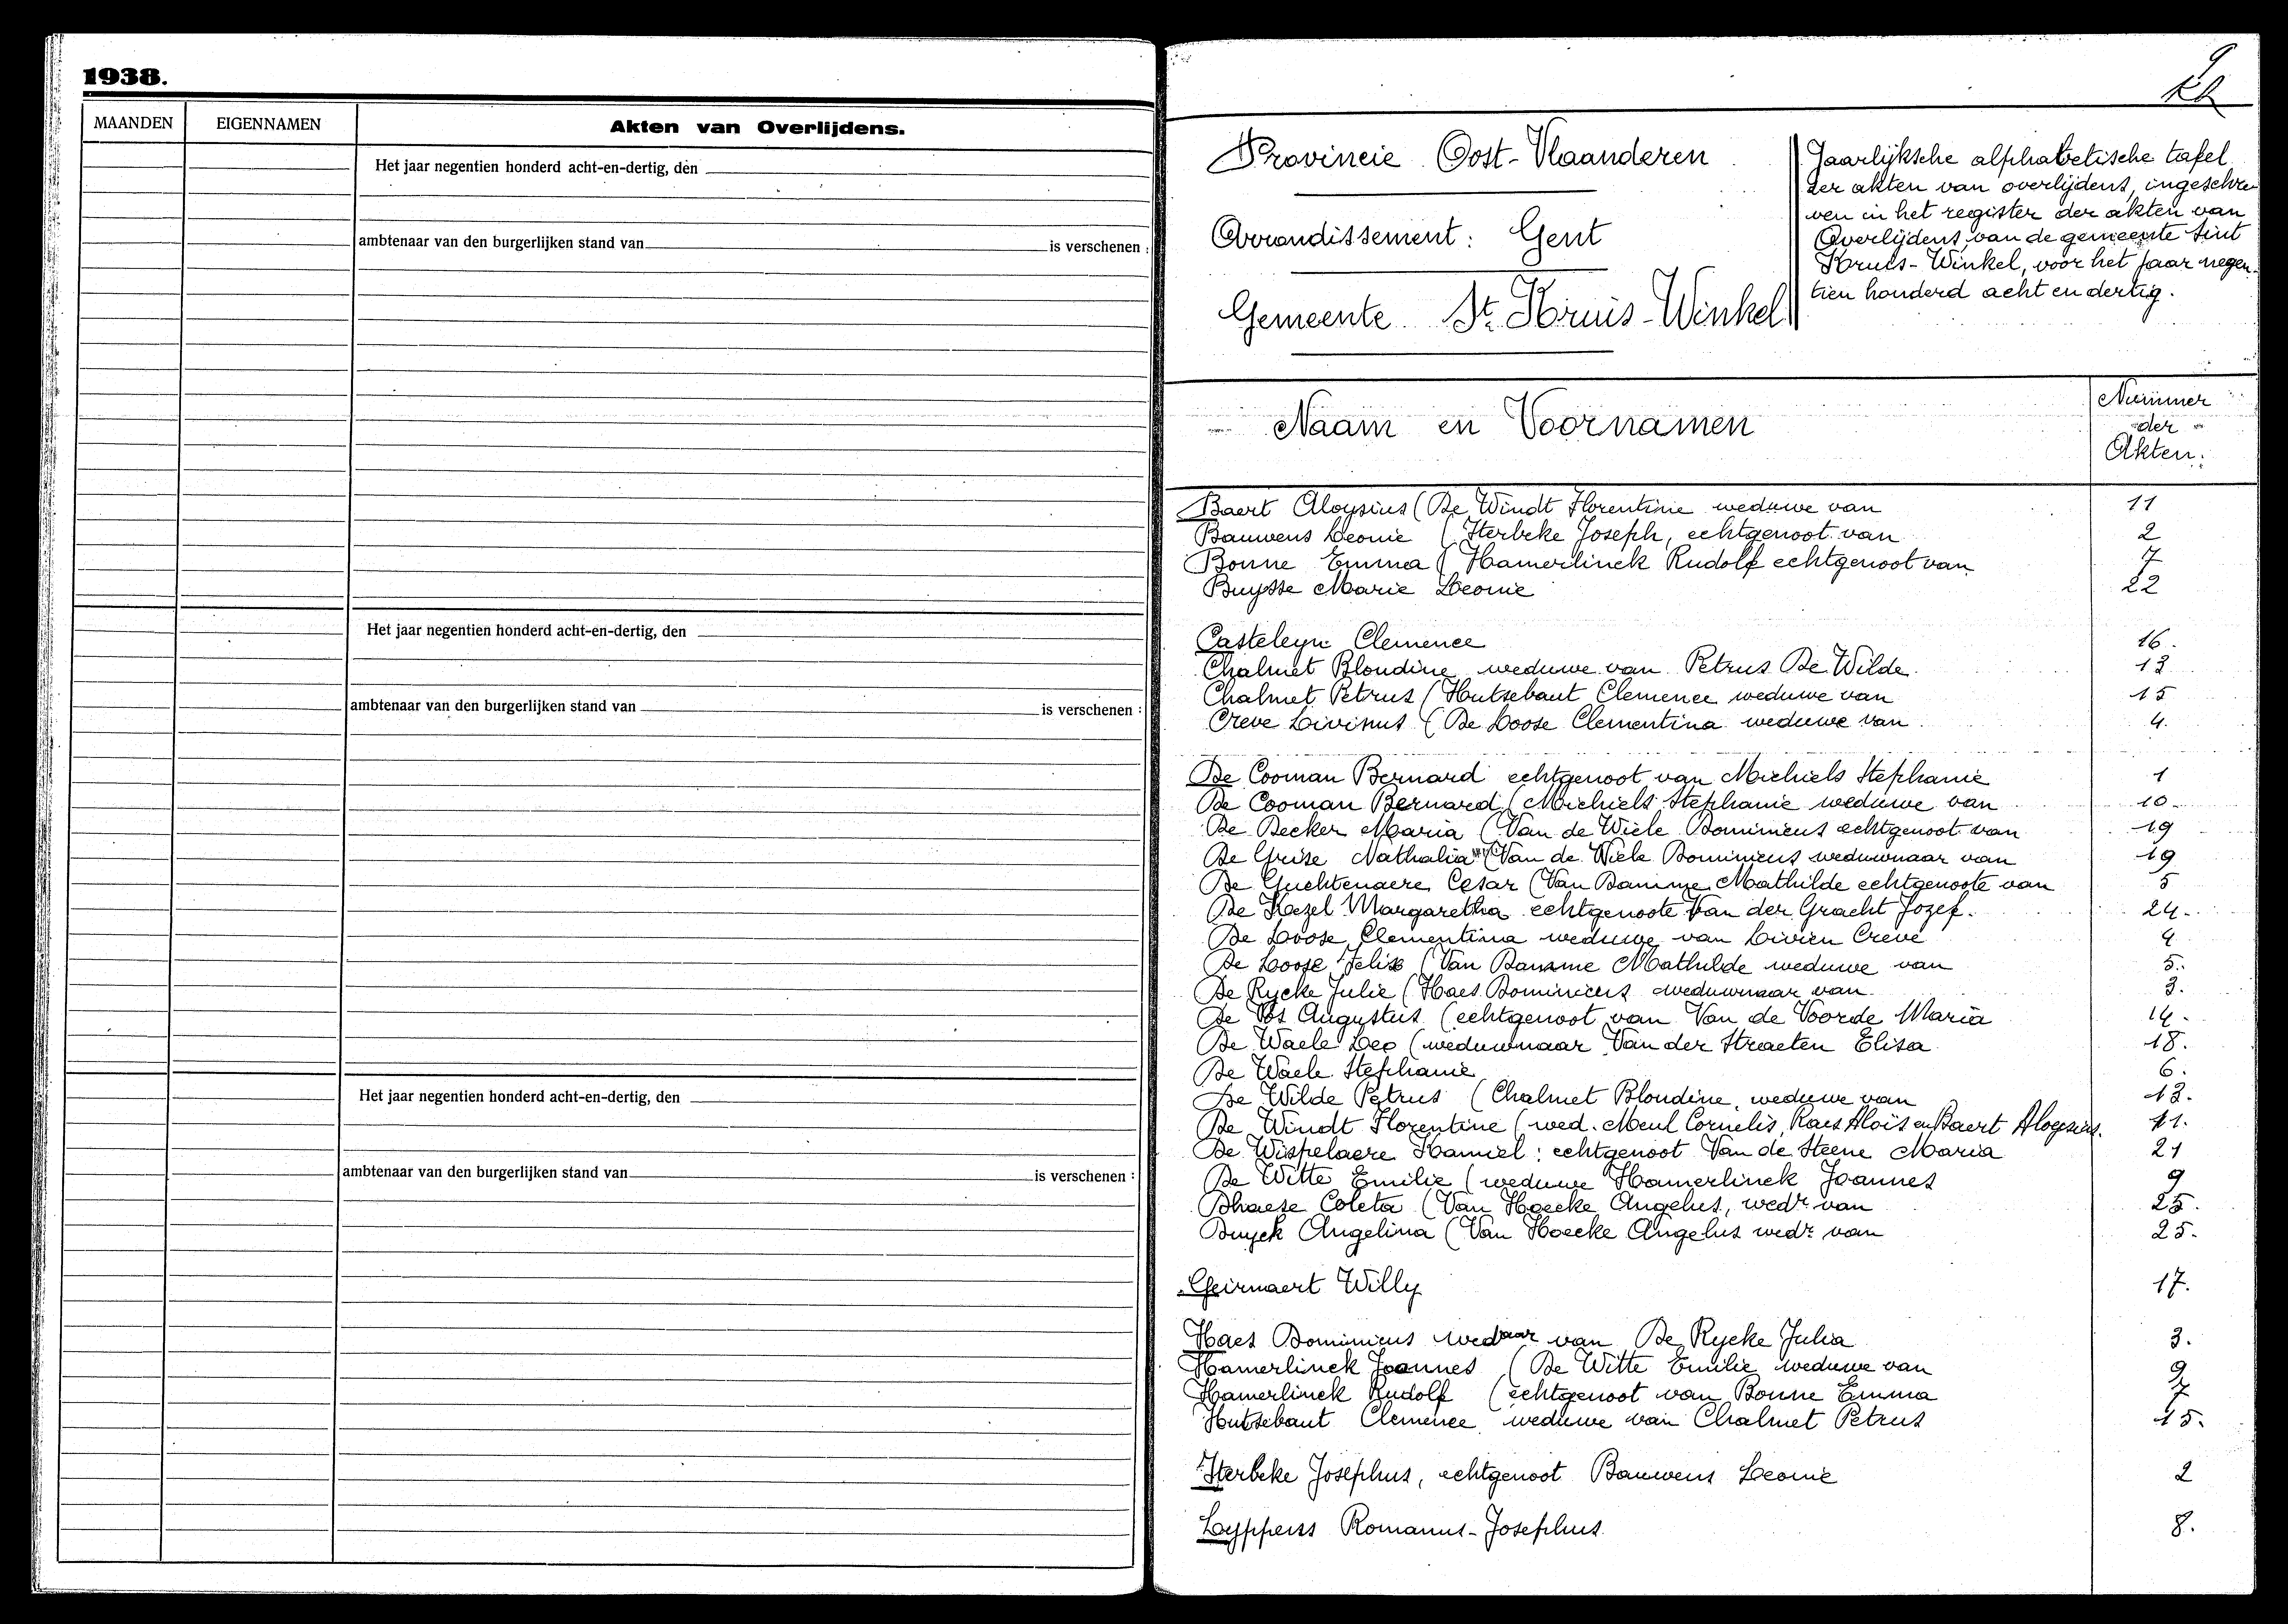 1938.
MAANDEN EIGENNAMEN Akten van Overlijdens.
Het jaar negentien honderd acht-en-dertig, den
ambtenaar van den burgerlijken stand van is verschenen :
Het jaar negentien honderd acht-en-dertig, den
ambtenaar van den burgerlijken stand van is verschenen :
Het jaar negentien honderd acht-en-dertig, den
ambtenaar van den burgerlijken stand van is verschenen :
9
Provincie Oost-Vlaanderen
Arrondissement: Gent
Gemeente St. Kruis-Winkel
Jaarlijksche alphabetische tafel
der akten van overlijdens, ingeschre-
ven in het register der akten van
Overlijdens van de gemeente Sint
Kruis-Winkel, voor het jaar negen-
tien honderd acht en dertig.
Naam en Voornamen
Nummer
der
Akten.
Baert Aloysius (De Windt Florentine weduwe van 11
Bauwens Leonie (Sterbeke Joseph, echtgenoot van 2
Bonne Emma (Hamerlinck Rudolf echtgenoot van 7
Buysse Marie Leonie 22
Casteleyn Clemence 16.
Chalmet Blondine weduwe van Petrus De Wilde. 13
Chalmet Petrus (Hutsebaut Clemence weduwe van 15
Creve Livinus (De Loose Clementina weduwe van 4.
De Cooman Bernard echtgenoot van Michiels Stephanie 1
De Cooman Bernard (Michiels Stephanie weduwe van 10.
De Decker Maria (Van de Wiele Dominicus echtgenoot van 19
De Grise Nathalia (Van de Wiele Dominicus weduwnaar van 19
De Guchtenaere Cesar (Van Damme Mathilde echtgenoote van 5
De Kezel Margaretha echtgenoote Van der Gracht Jozef. 24.
De Loose Clementina weduwe van Livien Creve 4
De Loose Felix (Van Damme Mathilde weduwe van 5.
De Rycke Julie (Haes Dominicus weduwnaar van 3.
De Vos Augustus (echtgenoot van Van de Voorde Maria 14.
De Waele Leo (weduwnaar Van der Straeten Elisa 18.
De Waele Stephanie 6.
De Wilde Petrus (Chalmet Blondine, weduwe van 13.
De Windt Florentine (wed. Meul Cornelis, Raes Aloïs en Baert Aloysius. 11.
De Wispelaere Kamiel: echtgenoot Van de Steene Maria 21
De Witte Emilie (weduwe Hamerlinck Joannes 9
Dhaese Coleta (Van Hoecke Angelus, wedr van 25.
Buyck Angelina (Van Hoecke Angelus wedr van 25.
Geirnaert Willy 17.
Haes Dominicus wedaar van De Rycke Julia 3.
Hamerlinck Joannes (De Witte Emilie weduwe van 9
Hamerlinck Rudolf (echtgenoot van Bonne Emma 7
Hutsebaut Clemence weduwe van Chalmet Petrus 15.
Sterbeke Josephus, echtgenoot Bauwens Leonie 2
Lyppens Romanus-Josephus. 8.